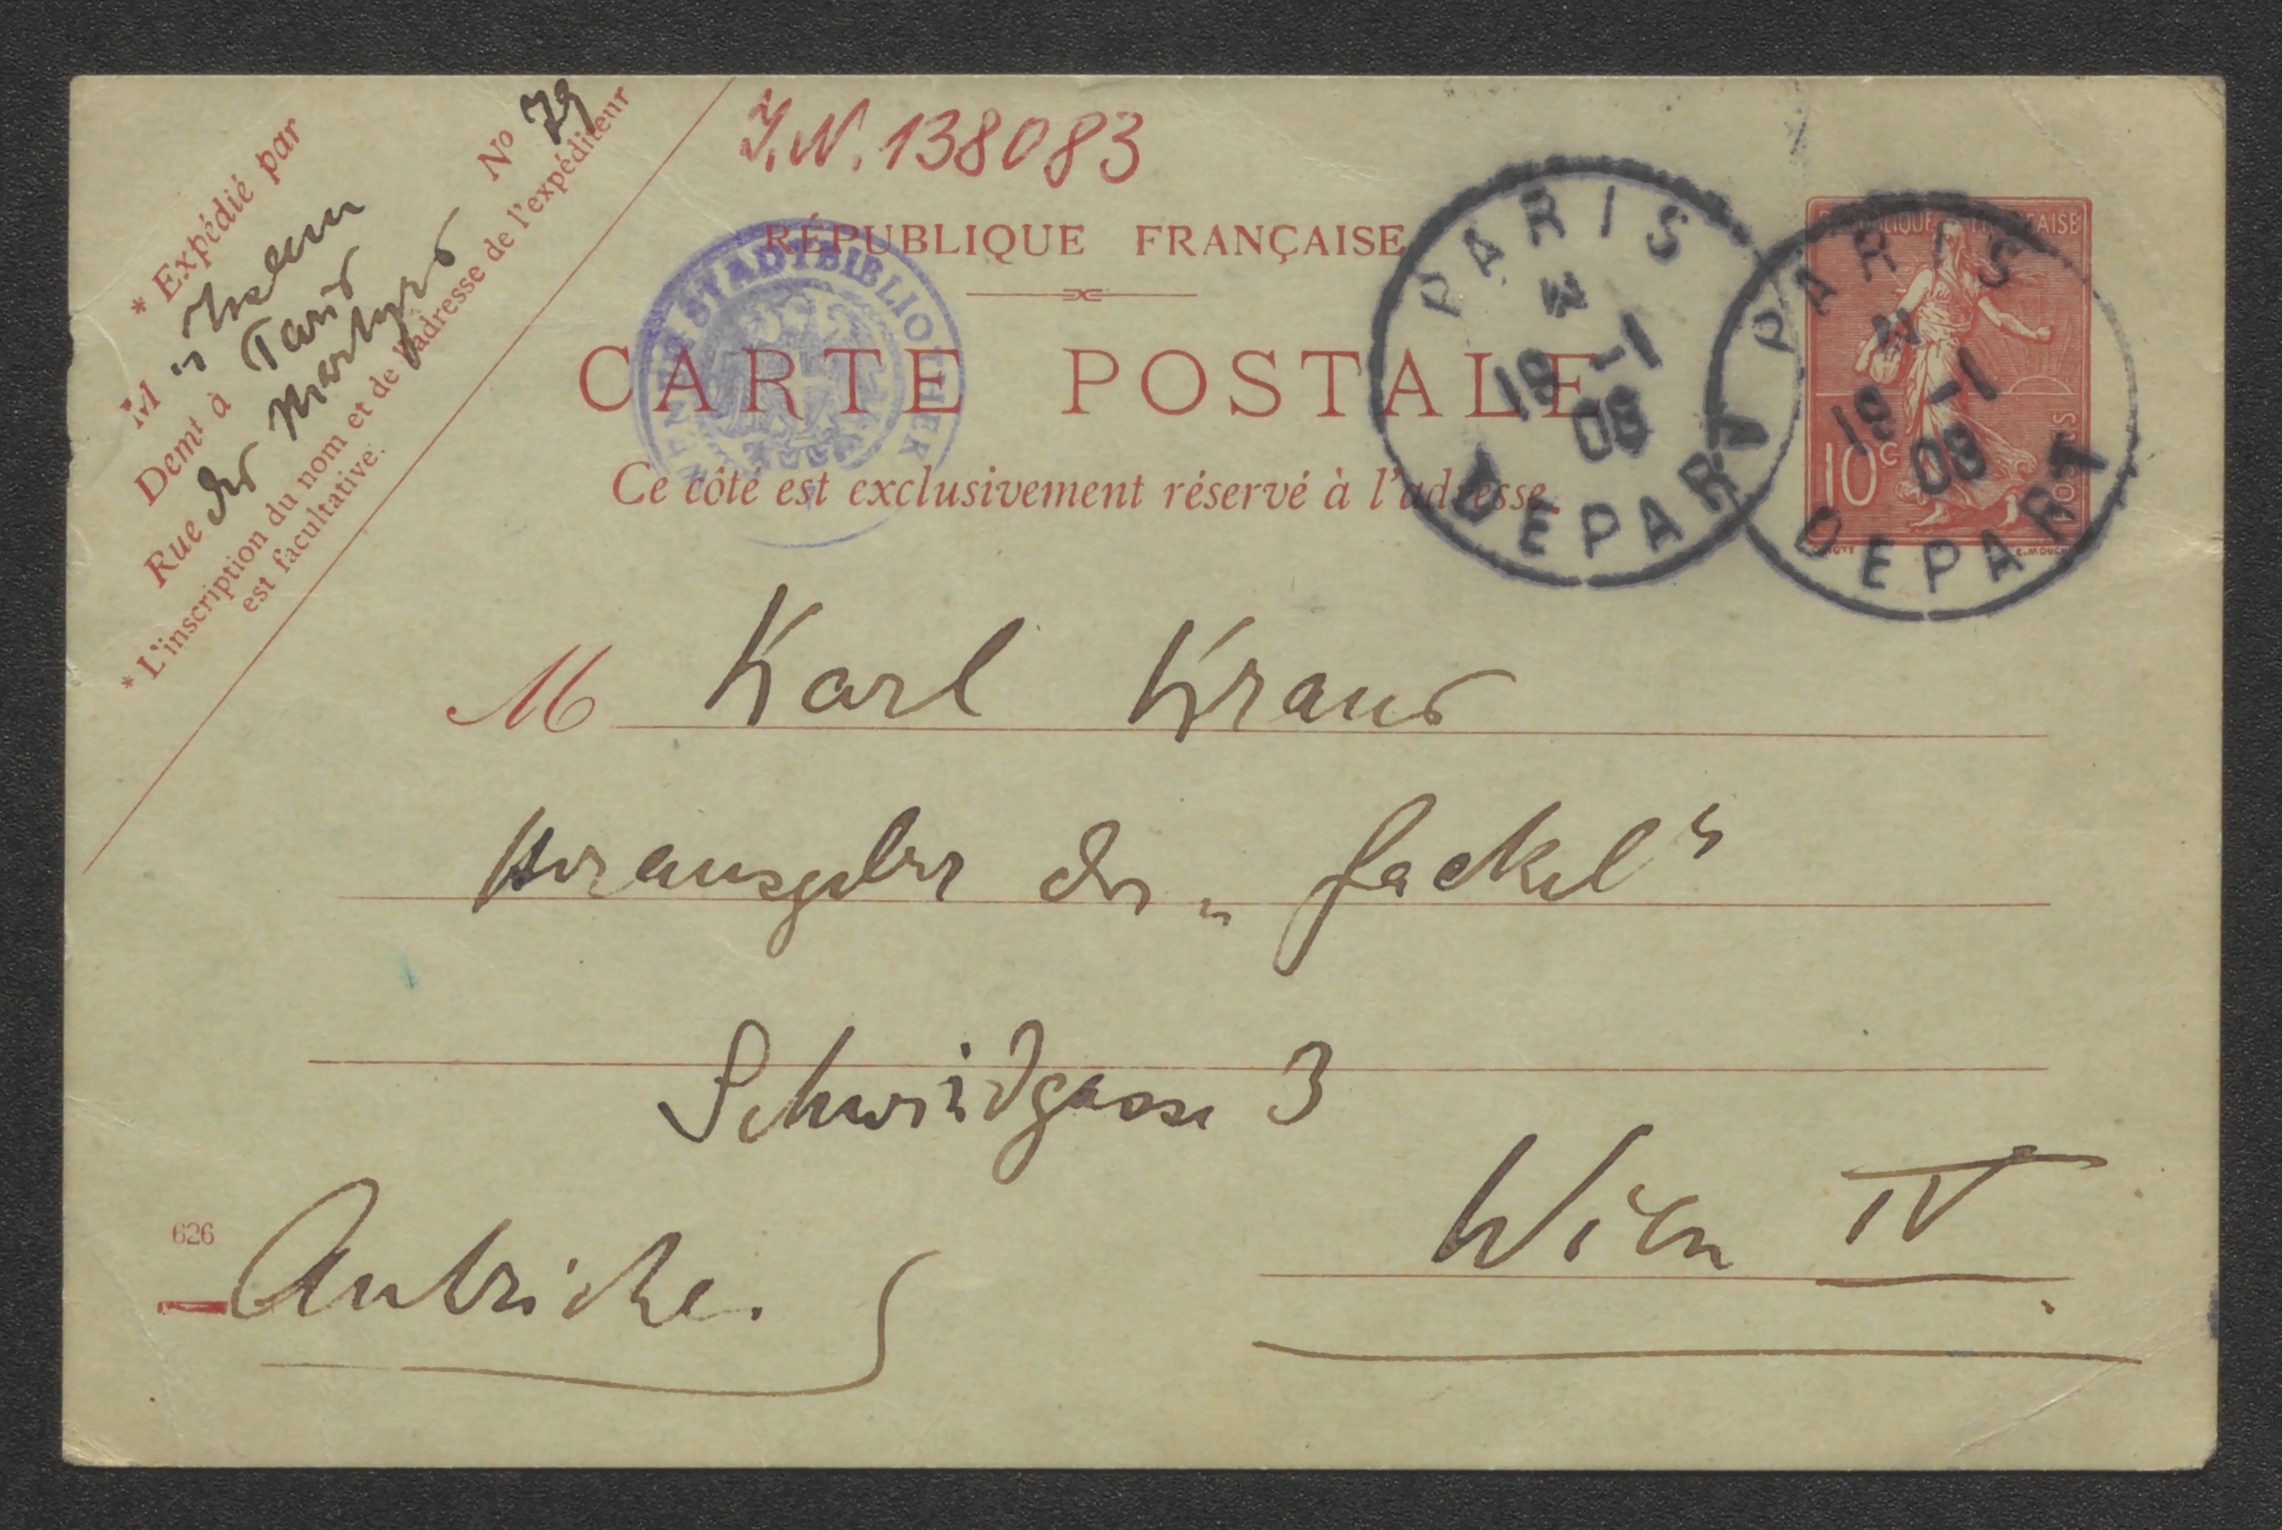 I.N. 138083
* Expédié par
M
Demt à Paris
Rue des Martyrs No 79
* L'inscription du nom et de l'adresse de l'expéditeur
est facultative.
RÉPUBLIQUE FRANÇAISE
CARTE POSTALE
Ce côté est exclusivement réservé à l'adresse.
WIENER STADTBIBLIOTHEK
PARIS
19 -1
08
DEPART
PARIS
19 -1
08
DEPART
RÉPUBLIQUE FRANÇAISE
10c
POSTES
M Karl Kraus
Herausgeber der „Fackel“
Schwindgasse 3
Wien IV.
626
Autriche.